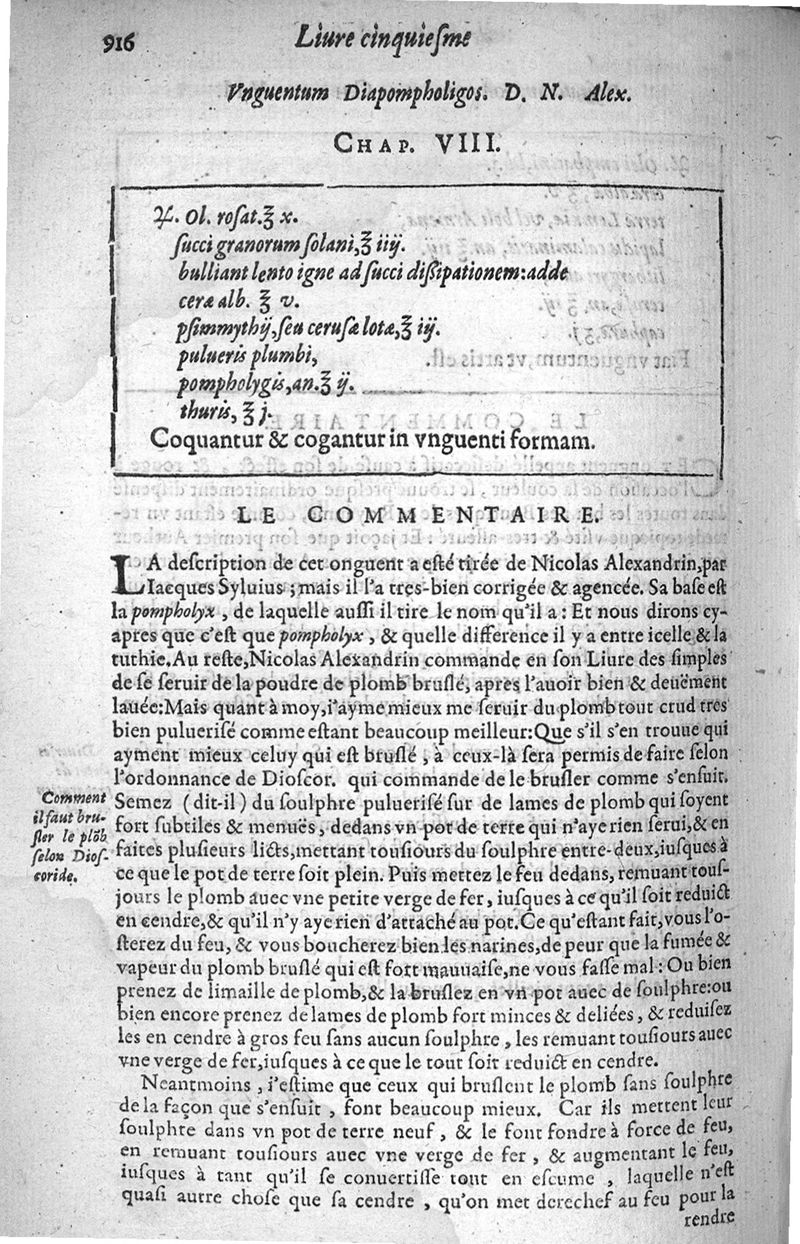 916 Liure cinquiesme
Vnguentum Diapompholigos. D. N. Alex.
CHAP. VIII.
♃. Ol. rosat.℥ x.
succi granorum solani,℥ iiij.
bulliant lento igne ad succi dißipationem:adde
ceræ alb. ℥ v.
psimmythij,seu cerusæ lotæ,℥ iij.
pulueris plumbi,
pompholygis,an.℥ ij.
thuris, ℥ j.
Coquantur & cogantur in vnguenti formam.
LE COMMENTAIRE.
LA description de cet onguent a esté tirée de Nicolas Alexandrin,par
Iacques Syluius ; mais il l'a tres-bien corrigée & agencée. Sa base est
la pompholyx , de laquelle aussi il tire le nom qu'il a : Et nous dirons cy-
apres que c'est que pompholyx , & quelle difference il y a entre icelle & la
tuthie. Au reste,Nicolas Alexandrin commande en son Liure des simples
de se seruir de la poudre de plomb bruslé, apres l'auoir bien & deuëment
lauée:Mais quant à moy,i'ayme mieux me seruir du plomb tout crud tres
bien puluerisé comme estant beaucoup meilleur:Que s'il s'en trouue qui
ayment mieux celuy qui est bruslé , à ceux-là sera permis de faire selon
l'ordonnance de Dioscor. qui commande de le brusler comme s'ensuit.
Comment
il faut bru-
sler le plõb
selon Dios-
coride.
Semez (dit-il) du soulphre puluerisé sur de lames de plomb qui soyent
fort subtiles & menuës, dedans vn pot de terre qui n'aye rien serui,& en
faites plusieurs licts,mettant tousiours du soulphre entre-deux,iusques à
ce que le pot de terre soit plein. Puis mettez le feu dedans, remuant tous-
jours le plomb auec vne petite verge de fer, iusques à ce qu'il soit reduict
en cendre,& qu'il n'y aye rien d'attaché au pot.Ce qu'estant fait,vous l'o-
sterez du feu, & vous boucherez bien les narines,de peur que la fumée &
vapeur du plomb bruslé qui est fort mauuaise,ne vous fasse mal : Ou bien
prenez de limaille de plomb,& la bruslez en vn pot auec de soulphre:ou
bien encore prenez de lames de plomb fort minces & deliées, & reduisez
les en cendre à gros feu sans aucun soulphre , les remuant tousiours auec
vne verge de fer,iusques à ce que le tout soit reduict en cendre.
Neantmoins , i'estime que ceux qui bruslent le plomb sans soulphre
de la façon que s'ensuit , font beaucoup mieux. Car ils mettent leur
soulphre dans vn pot de terre neuf, & le font fondre à force de feu,
en remuant tousiours auec vne verge de fer , & augmentant le feu,
iusques à tant qu'il se conuertisse tout en escume , laquelle n'est
quasi autre chose que sa cendre , qu'on met derechef au feu pour la
rendre